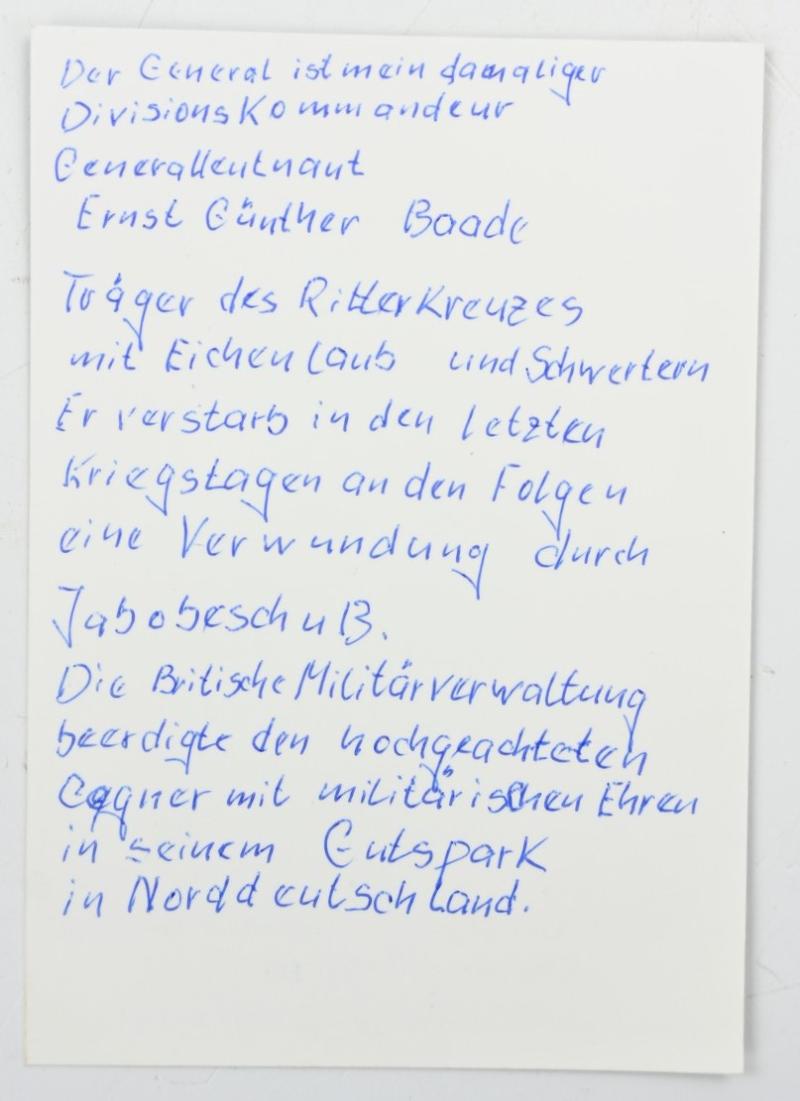 Der General ist mein damaliger
Divisionskommandeur
Generalleutnant
Ernst Günther Baade
Träger des Ritterkreuzes
mit Eichenlaub und Schwertern
Er verstarb in den letzten
Kriegstagen an den Folgen
eine Verwundung durch
Jabobeschuß.
Die Britische Militärverwaltung
beerdigte den hochgeachteten
Gegner mit militärischen Ehren
in seinem Gutspark
in Norddeutschland.